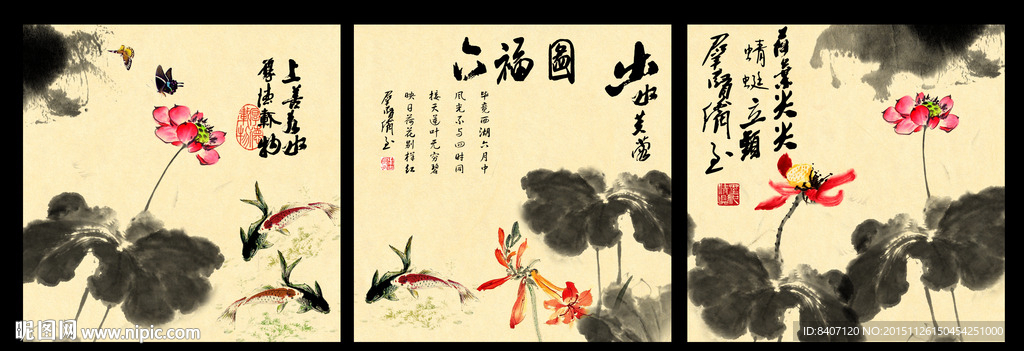 上善若水
厚德載物
六福圖
出水芙蓉
毕竟西湖六月中
风光不与四时同
接天莲叶无穷碧
映日荷花别样红
群賢濟至
荷葉尖尖
蜻蜓立頭
群賢濟至
昵图网 www.nipic.com
ID:8407120 NO:20151126150454251000